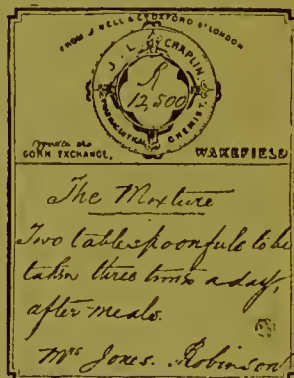 FROM J. NELL & CO OXFORD ST LONDON
J. L. CHAPLIN.
R
12,500
PHARMACEUTICAL CHEMIST.
Opposite the
CORN EXCHANGE,
WAKEFIELD
The Mixture
Two tablespoonfuls to be
taken three times a day,
after meals.
Mrs Jones. Robinson